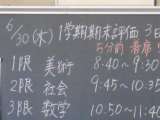 6/30(水) 1学期期末評価 3日
5分前 着席
1限 美術 8:40~9:30
2限 社会 9:45~10:35
3限 数学 10:50~11:40